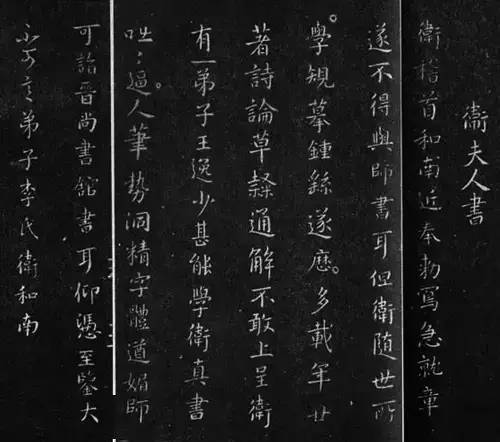 衞夫人書
衞稽首和南近奉勅寫急就章
遂不得與師書耳但衞随世所
學規摹鍾繇遂歷多載年廿
著詩論草隸通解不敢上呈衞
有一弟子王逸少甚能學衞真書
咄〻逼人筆勢洞精字體遒媚師
可詣晉尚書館書耳仰憑至鑒大
不可言弟子李氏衞和南